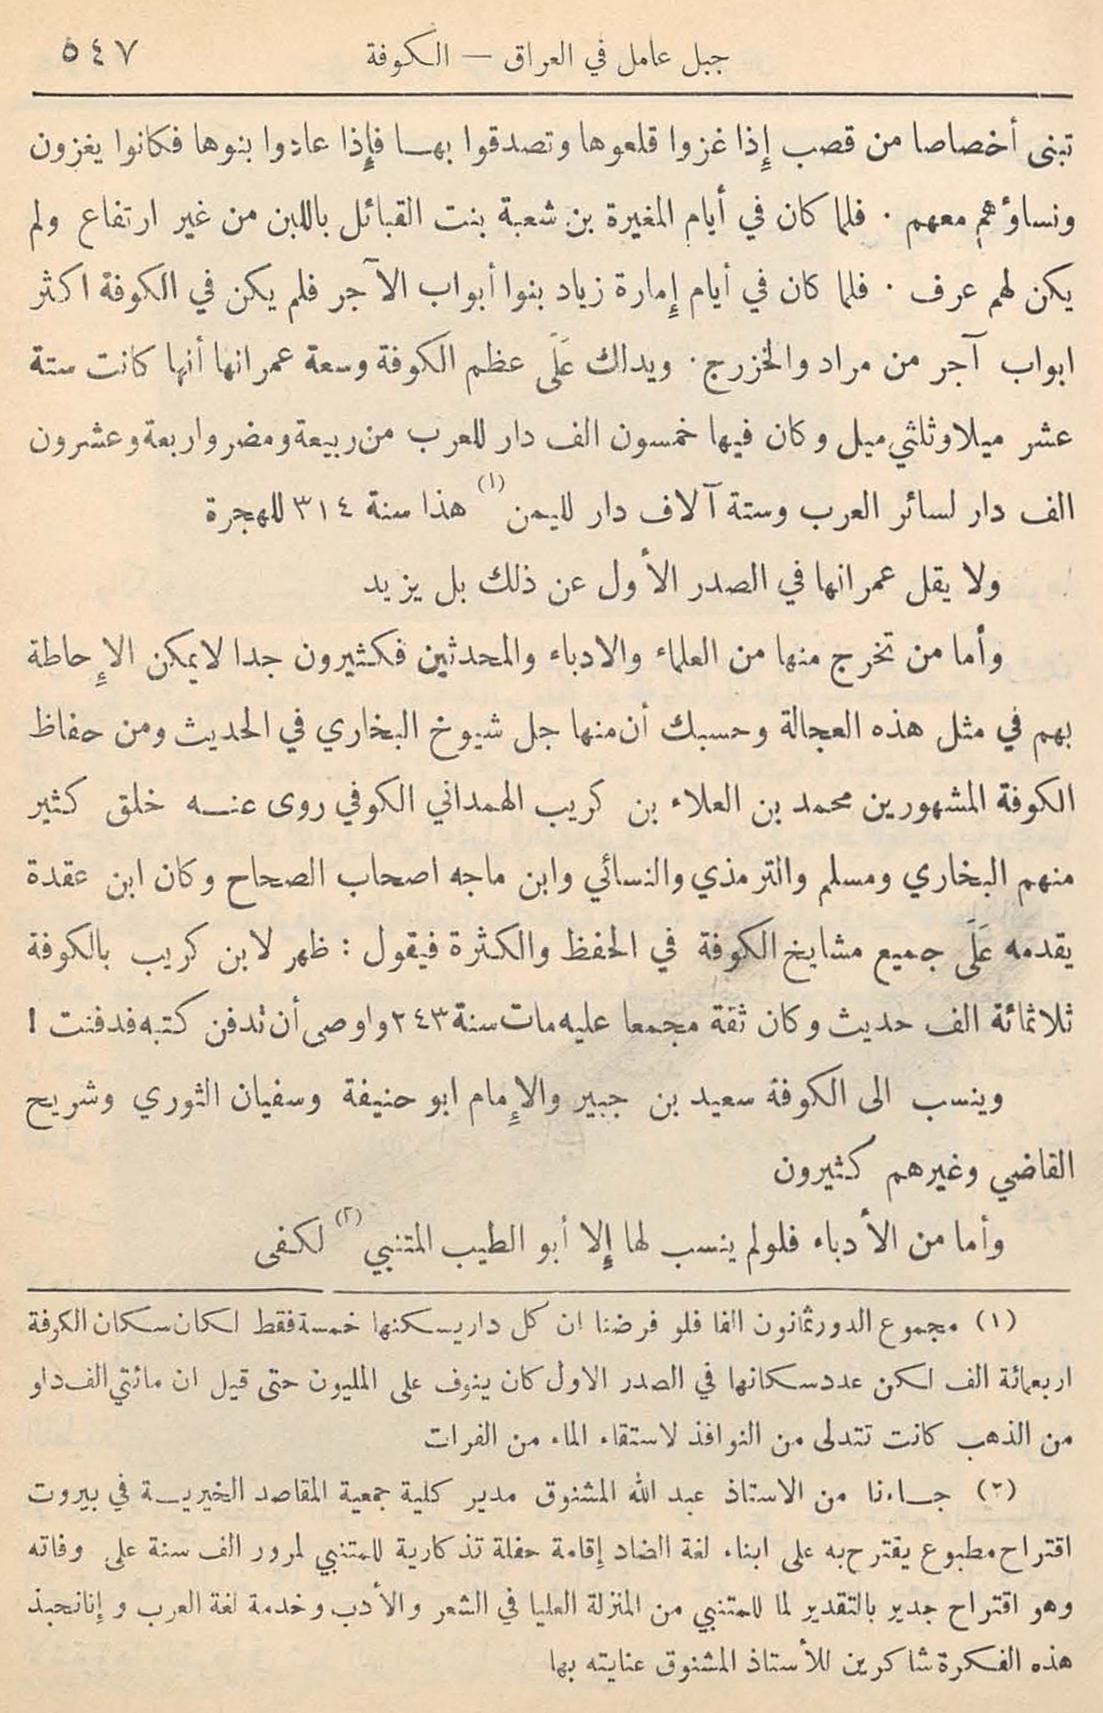 جبل عامل في العراق — الكوفة ٥٤٧
تبنى أخصاصا من قصب إِذا غزوا قلعوها وتصدقوا بهـا فإِذا عادوا بنوها فكانوا يغزون
ونساؤهم معهم . فلما كان في أيام المغيرة بن شعبة بنت القبائل باللبن من غير ارتفاع ولم
يكن لهم عرف . فلما كان في أيام إِمارة زياد بنوا أبواب الآجر فلم يكن في الكوفة اكثر
ابواب آجر من مراد والخزرج . ويدلك عَلَى عظم الكوفة وسعة عمرانها أنها كانت ستة
عشر ميلا وثلثي ميل وكان فيها خمسون الف دار للعرب من ربيعة ومضر واربعة وعشرون
الف دار لسائر العرب وستة آلاف دار لليمن (١) هذا سنة ٣١٤ للهجرة
ولا يقل عمرانها في الصدر الأول عن ذلك بل يزيد
وأما من تخرج منها من العلماء والادباء والمحدثين فكثيرون جدا لا يمكن الإِحاطة
بهم في مثل هذه العجالة وحسبك أن منها جل شيوخ البخاري في الحديث ومن حفاظ
الكوفة المشهورين محمد بن العلاء بن كريب الهمداني الكوفي روى عنـه خلق كثير
منهم البخاري ومسلم والترمذي والنسائي وابن ماجه اصحاب الصحاح وكان ابن عقدة
يقدمه عَلَى جميع مشايخ الكوفة في الحفظ والكثرة فيقول : ظهر لابن كريب بالكوفة
ثلاثمائة الف حديث وكان ثقة مجمعا عليه مات سنة ٢٤٣ واوصى أن تدفن كتبه فدفنت !
وينسب الى الكوفة سعيد بن جبير والإِمام ابو حنيفة وسفيان الثوري وشريح
القاضي وغيرهم كثيرون
وأما من الأدباء فلو لم ينسب لها إِلا أبو الطيب المتنبي (٢) لكفى
(١) مجموع الدور ثمانون الفا فلو فرضنا ان كل دار يسكنها خمسة فقط لكان سكان الكوفة
اربعمائة الف لكن عدد سكانها في الصدر الاول كان ينوف على المليون حتى قيل ان مائتي الف دلو
من الذهب كانت تتدلى من النوافذ لاستقاء الماء من الفرات
(٢) جـاءنا من الاستاذ عبد الله المشنوق مدير كلية جمعية المقاصد الخيريـة في بيروت
اقتراح مطبوع يقترح به على ابناء لغة الضاد إقامة حفلة تذكارية للمتنبي لمرور الف سنة على وفاته
وهو اقتراح جدير بالتقدير لما للمتنبي من المنزلة العليا في الشعر والأدب وخدمة لغة العرب وإننا نحبذ
هذه الفكرة شاكرين للأستاذ المشنوق عنايته بها